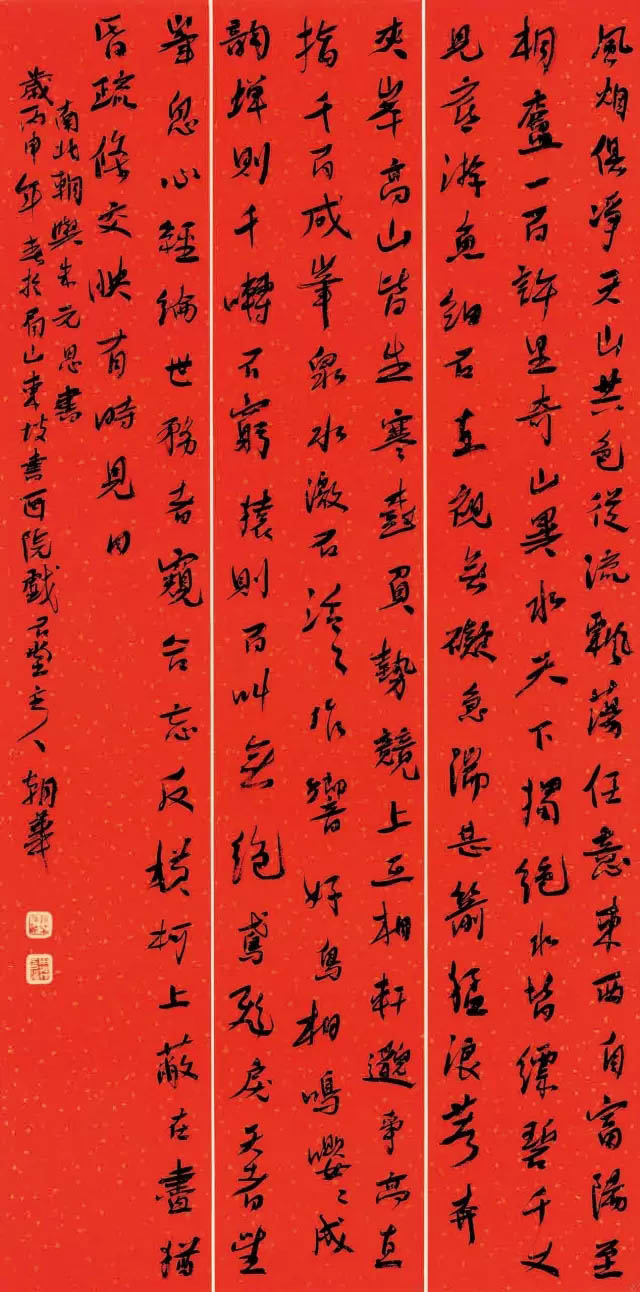 風烟俱淨天山共色從流飄蕩任意東西自富陽至
桐廬一百許里奇山異水天下獨絕水皆縹碧千丈
見底游魚細石直視無礙急湍甚箭猛浪若奔
夾岸高山皆生寒樹負勢競上互相軒邈爭高直
指千百成峯泉水激石泠〻作響好鳥相鳴嚶〻成
韻蟬則千囀不窮猿則百叫無絕鳶飛戾天者望
峯息心經綸世務者窺谷忘反橫柯上蔽在晝猶
昏疏條交映有時見日
南北朝與朱元思書
歲丙申年春於眉山東坡書画院戲石堂主人朝華